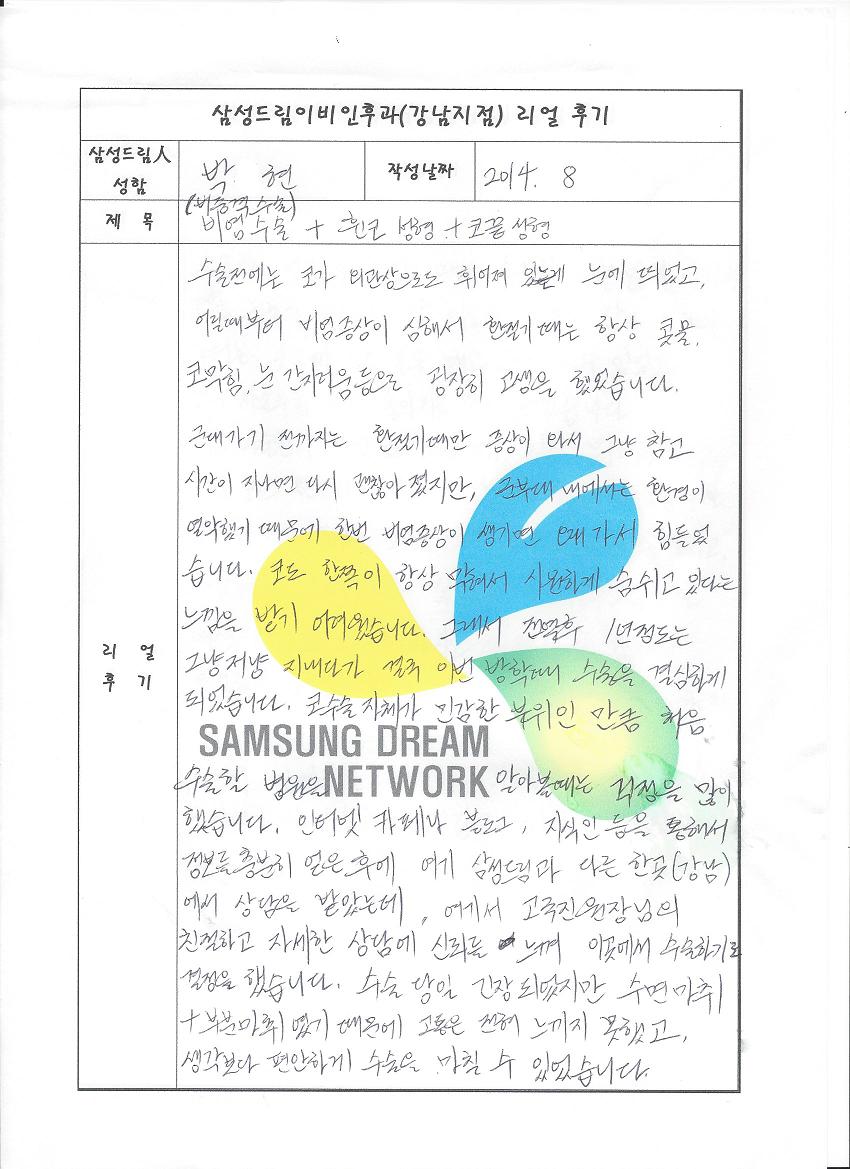 삼성드림이비인후과(강남지점) 리얼 후기
삼성드림人 성함
박 현
작성날짜
2014. 8
제 목
(비중격수술)
비염수술 + 휜코 성형 + 코끝 성형
리 얼 후 기
수술전에는 코가 외관상으로도 휘어져 있는게 눈에 띄었고,
어릴때부터 비염증상이 심해서 환절기때는 항상 콧물,
코막힘, 눈 간지러움등으로 굉장히 고생을 했었습니다.
군대가기 전까지는 환절기때만 증상이 와서 그냥 참고
시간이 지나면 다시 괜찮아졌지만, 군부대 내에서는 환경이
열악했기 때문에 한번 비염증상이 생기면 오래가서 힘들었
습니다. 코도 한쪽이 항상 막혀서 시원하게 숨쉬고 있다는
느낌을 받기 어려웠습니다. 그래서 전역후 1년정도는
그냥저냥 지내다가 결국 이번 방학때 수술을 결심하게
되었습니다. 코수술 자체가 민감한 부위인 만큼 처음
SAMSUNG DREAM
NETWORK
수술할 병원을 알아볼때는 걱정을 많이
했습니다. 인터넷 카페나 블로그, 지식인 등을 통해서
정보를 충분히 얻은 후에 여기 삼성드림과 다른 한곳(강남)
에서 상담을 받았는데, 여기서 고국진원장님의
친절하고 자세한 상담에 신뢰를 느껴 이곳에서 수술하기로
결정을 했습니다. 수술 당일 긴장되었지만 수면마취
+부분마취였기 때문에 고통은 전혀 느끼지 못했고,
생각보다 편안하게 수술을 마칠 수 있었습니다.